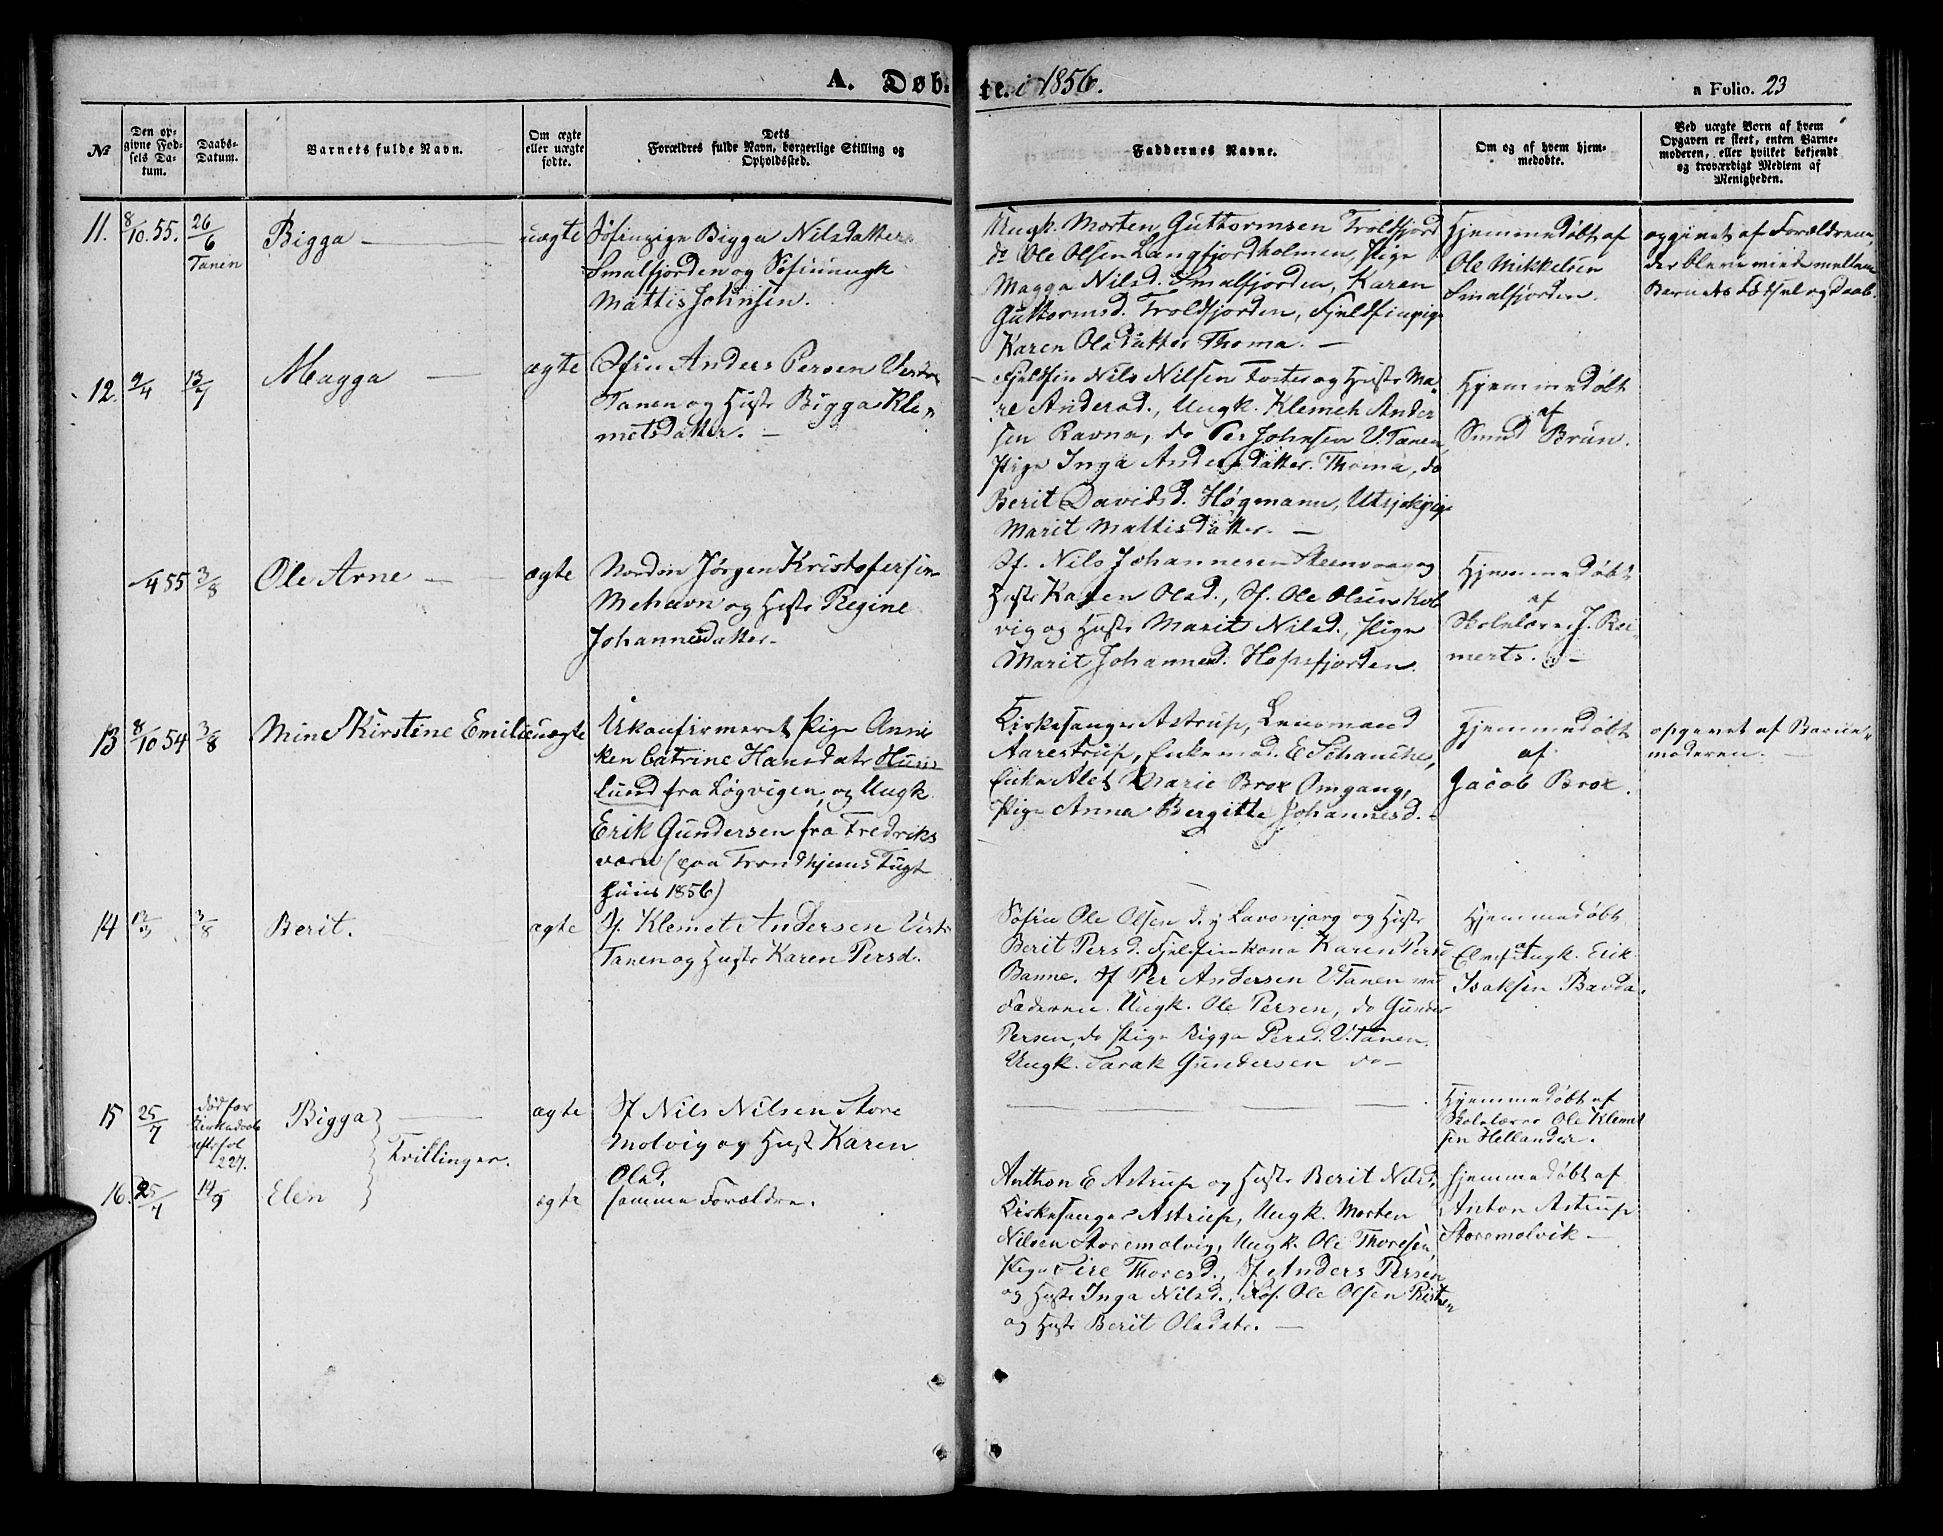 A. Døb-
te. i 1856.
a Folio. 23
No
Den op-
givne Fød-
sels Da-
tum.
Daabs-
Datum.
Barnets fulde Navn.
Om ægte
eller uægte
fødte.
Dets
Forældres fulde Navn, borgerlige Stilling og
Opholdssted.
Faddernes Navne.
Om og af hvem hjem-
medøbte.
Ved uægte Børn af hvem
Opgaven er skeet, enten Barne-
moderen, eller hvilket bekjendt
og troværdigt Medlem af
Menigheden.
11. 8/10.55. 26/6 Tanen
Bigga
uægte
Søfinpige Bigga Nilsdatter
Smalfjorden og Søfinungk
Mattis Johnsen.
Ungk. Morten Guttormsen Troldfjord
do Ole Olsen Langfjordholmen, Pige
Magga Nilsd. Smalfjorden, Karen
Guttormsd. Troldfjorden, Fjeldfinpige
Karen Olsdatter Thoma.
Hjemmedøbt af
Ole Mikkelsen
Smalfjorden.
opgivet af Forældrene,
der bleve viede mellem
Barnets Fødsel og Daab.
12. 9/4 13/7
Magga
ægte
Sfin Anders Persen Vestre
Tanen og Hustr Bigga Kle-
metsdatter.
Fjeldfin Nils Nilsen og Hustr Ma-
re Andersd., Ungk. Klemet Ander
sen Ravna, do Per Johnsen V. Tanen
Pige Inga Andersdatter Thoma, do
Berit Davidsd. Høgmann, Utsjokpige
Marit Mattisdatter.
Hjemmedøbt
af
Smed Brun.
/4 55 3/8
Ole Arne
ægte
Nordm Jørgen Kristofersen
Mehavn og Hustr Regine
Johannesdatter.
Sf. Nils Johannesen Steenvaag og
Hustr Karen Olsd., Sf. Ole Olsen Kol
vig og Hustr Marit Nilsd., Pige
Marit Johannesd. Hopsfjorden.
Hjemmedøbt
af
Skolelærer J. Rei-
merts.
13 8/10 54 3/8
Mine Kirstine Emilie
uægte
Ukonfirmeret Pige Anni
ken Catrine Hansdatr Hun
lund fra Løgvigen, og Ungk.
Erik Gundersen fra Fredriks
værn (paa Trondhjems Tugt
huus 1856)
Kirkesanger Astrup, Lensmand
Aarestrup, Enkemad. E Schanche,
Enke Alet Marie Brox Omgang,
Pige Anna Bergitte Johannesd.
Hjemmedøbt
af
Jacob Brox.
opgivet af Barne-
moderen.
14 13/3 3/8
Berit.
ægte
Sf. Klemet Andersen Vestr
Tanen og Hustr Karen Persd.
Søfin Ole Olsen d. y Lavonjarg og Hustr
Berit Persd. Fjelfinkona Karen Persd
Banne. Sf Per Andersen V. Tanen
Faderen. Ungk. Ole Persen, do Gunder
Persen, do Pige Bigga Persd. V. Tanen.
Ungk. Tarak Gundersen do
Hjemmedøbt
af
Elvef. Ungk. Erik
Isaksen Bavda.
15 25/7
død før
Kirkedaab
227.
Bigga
Tvillinger.
ægte
Sf Nils Nilsen Store
molvig og Hust Karen
Olsd.
Hjemmedøbt af
Skolelærer Ole Klemet
sen Hellander.
16. 25/7 14/9
Elen
ægte
samme Forældre.
Anthon E Astrup og Hustr Berit Nilsd,
Kirkesanger Astrup, Ungk. Morten
Nilsen Storemolvig, Ungk. Ole Thoresen,
Pige Sire Thoresd., Sf Anders Persen
og Hustr Inga Nilsd., Søf. Ole Olsen
og Hustr Berit Olsdatr.
Hjemmedøbt af
Anton Astrup
Storemolvik